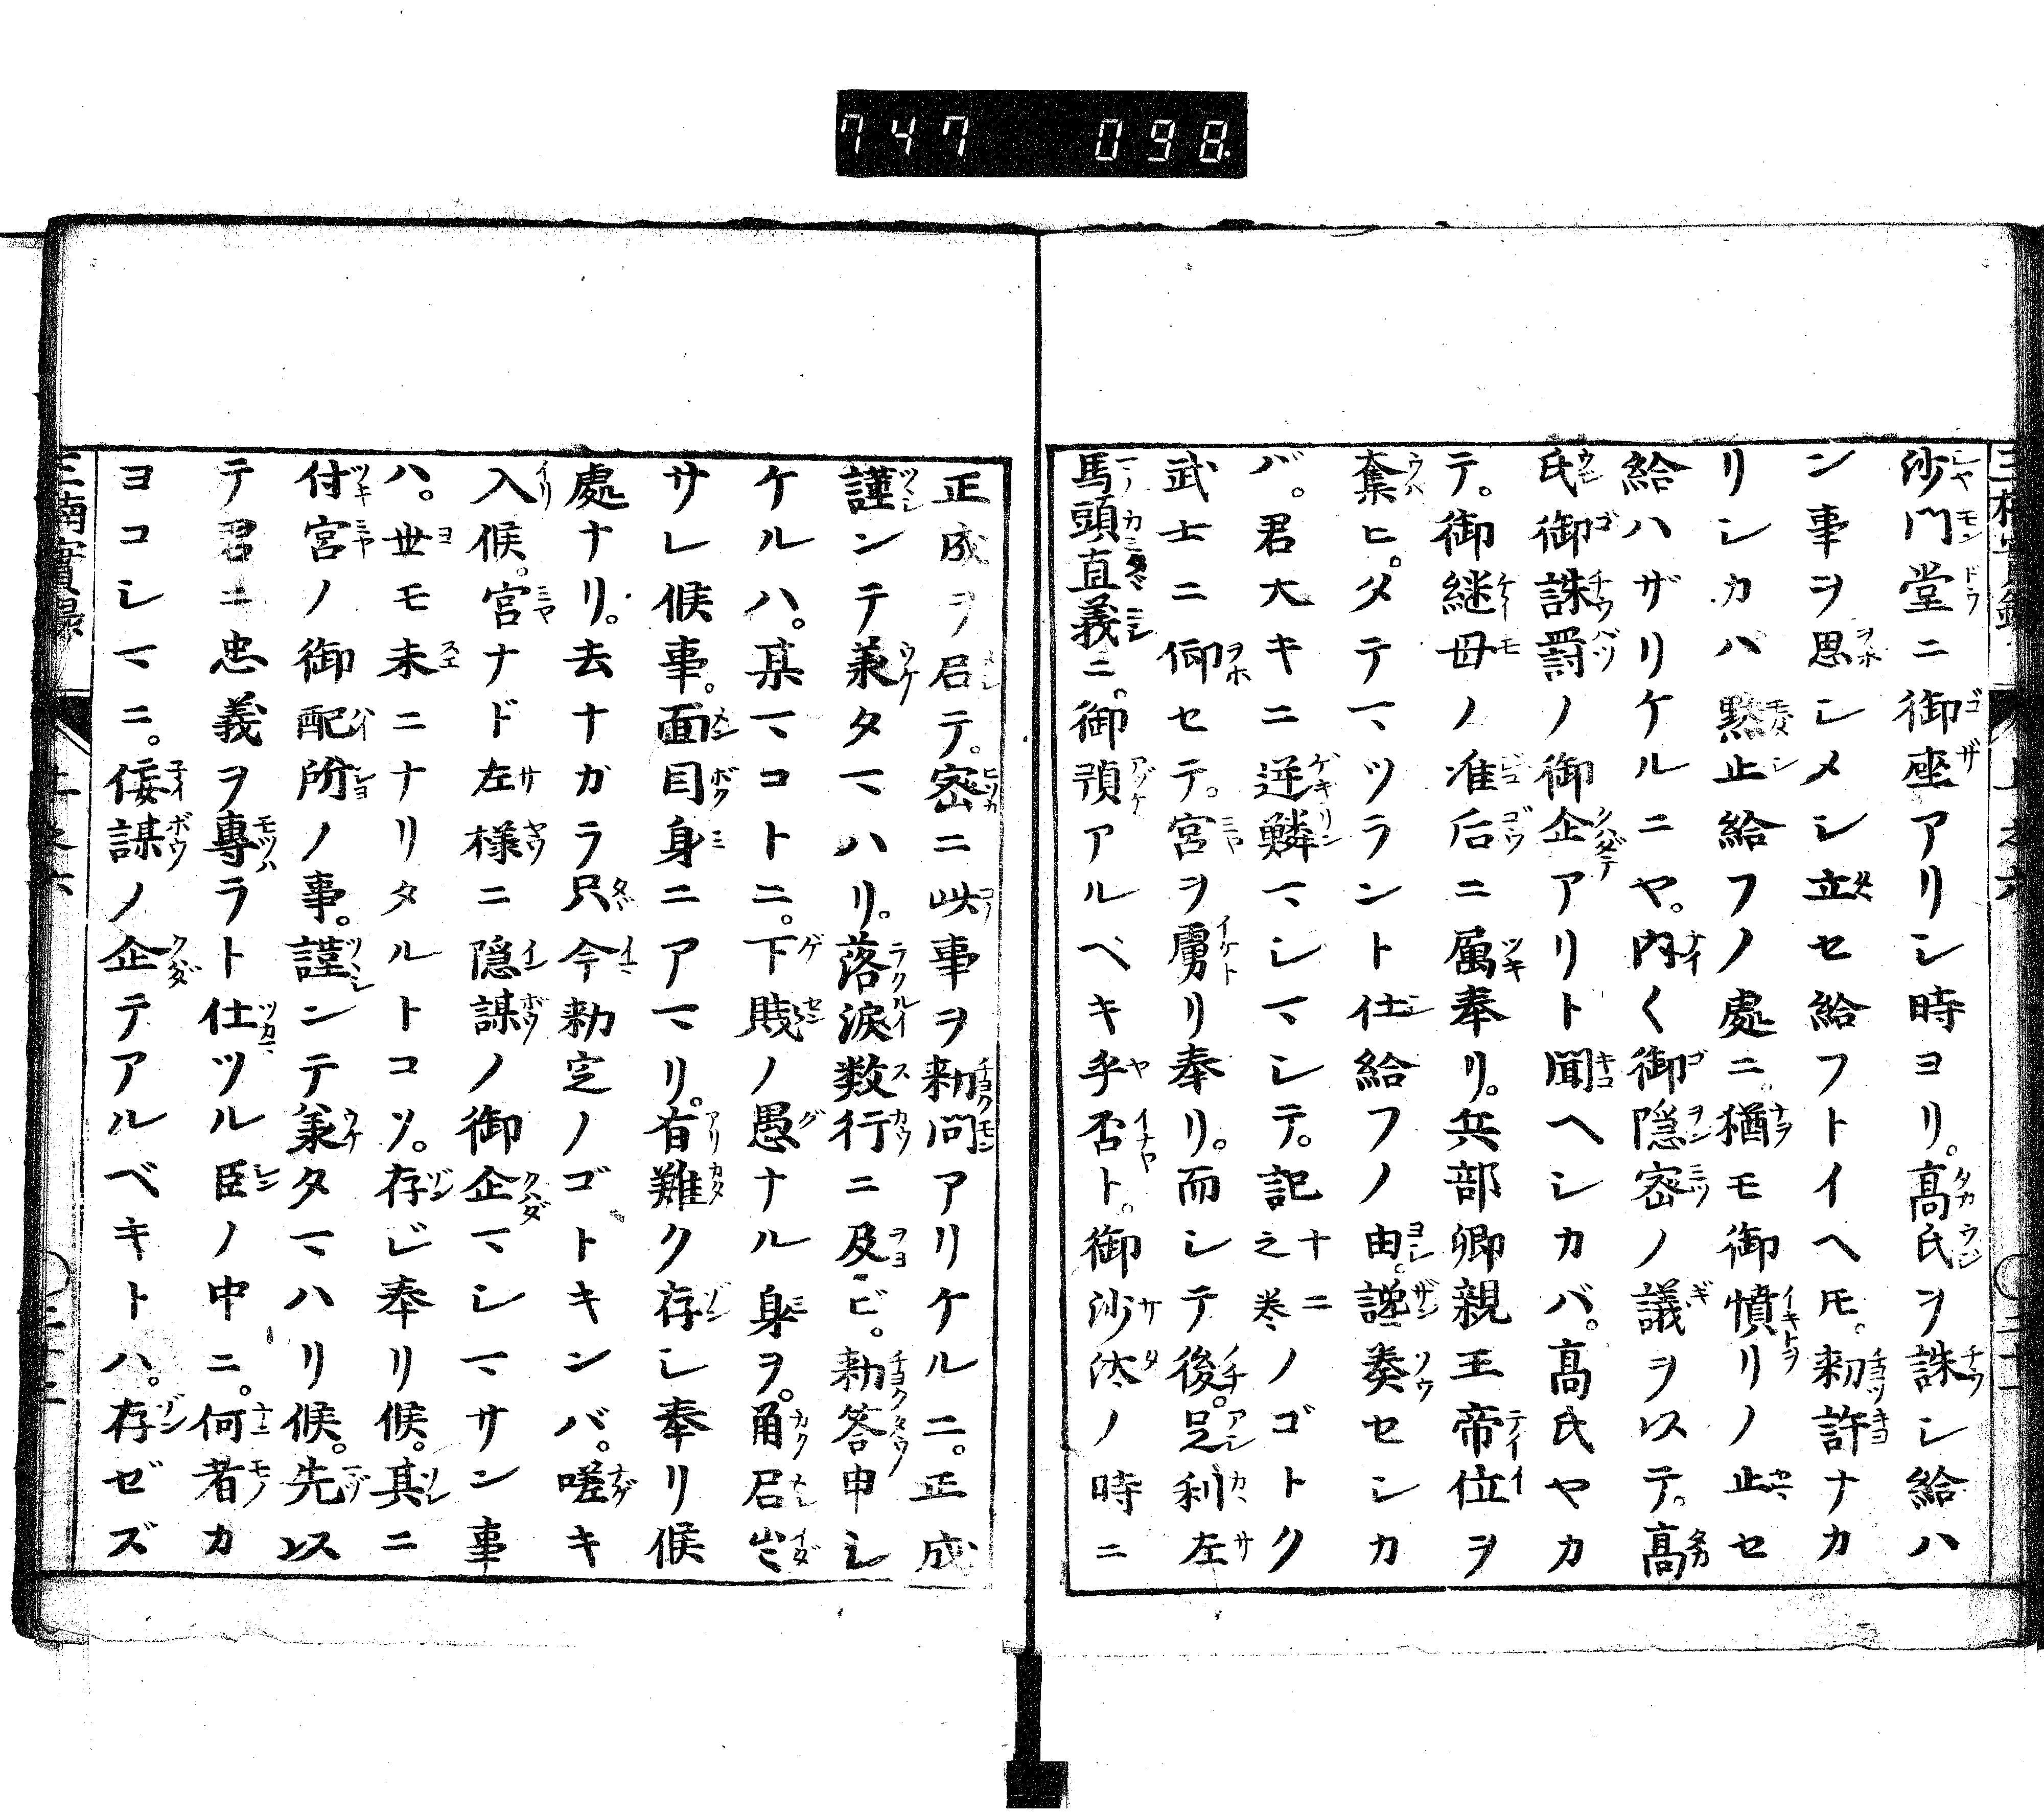 747 098
沙門堂ニ御座アリシ時ヨリ。髙氏ヲ誅シ給ハ
ン事ヲ思シメシ立セ給フトイヘ𪜈。勅許ナカ
リシカバ黙止給フノ處ニ。猶モ御憤リノ止セ
給ハザリケルニヤ。内〱御隠密ノ議ヲ以テ。髙
氏御誅罸ノ御企アリト聞ヘシカバ。髙氏ヤカ
テ。御継母ノ准后ニ属奉リ。兵部卿親王帝位ヲ
奪ヒ。タテマツラント仕給フノ由。讒奏セシカ
バ。君大キニ逆鱗マシマシテ。記十二之巻ノゴトク
武士ニ仰セテ。宮ヲ虜リ奉リ。而シテ後。足利左
馬頭直義ニ。御預アルベキ乎否ト。御沙汰ノ時ニ
正成ヲ召テ。密ニ此事ヲ勅問アリケルニ。正成
謹ンテ兼タマハリ。落涙数行ニ及ビ。勅答申シ
ケルハ。某マコトニ。下賎ノ愚ナル身ヲ。角召出
サレ候事。面目身ニアマリ。有難ク存シ奉リ候
處ナリ。去ナガラ只今勅定ノゴトキンバ。嗟キ
入候。宮ナド左様ニ隠謀ノ御企マシマサン事
ハ。世モ末ニナリタルトコソ。存ジ奉リ候。其ニ
付宮ノ御配所ノ事。謹ンテ兼タマハリ候。先以
テ君ニ忠義ヲ專ラト仕ツル臣ノ中ニ。何者カ
ヨコシマニ。佞謀ノ企テアルベキトハ。存ゼズ